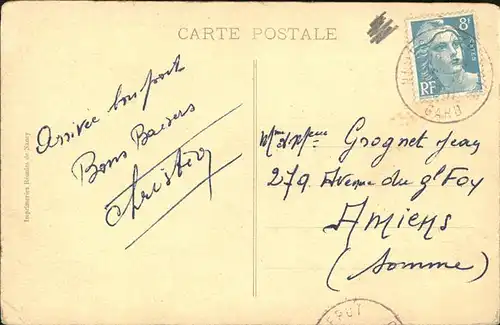 CARTE POSTALE
Arrivée bon port
Bons Baisers
Christian
Imprimeries Réunies de Nancy
8F
RF
GARD
Grognet Jean
279 Avenue du gl Foy
Amiens
(Somme)